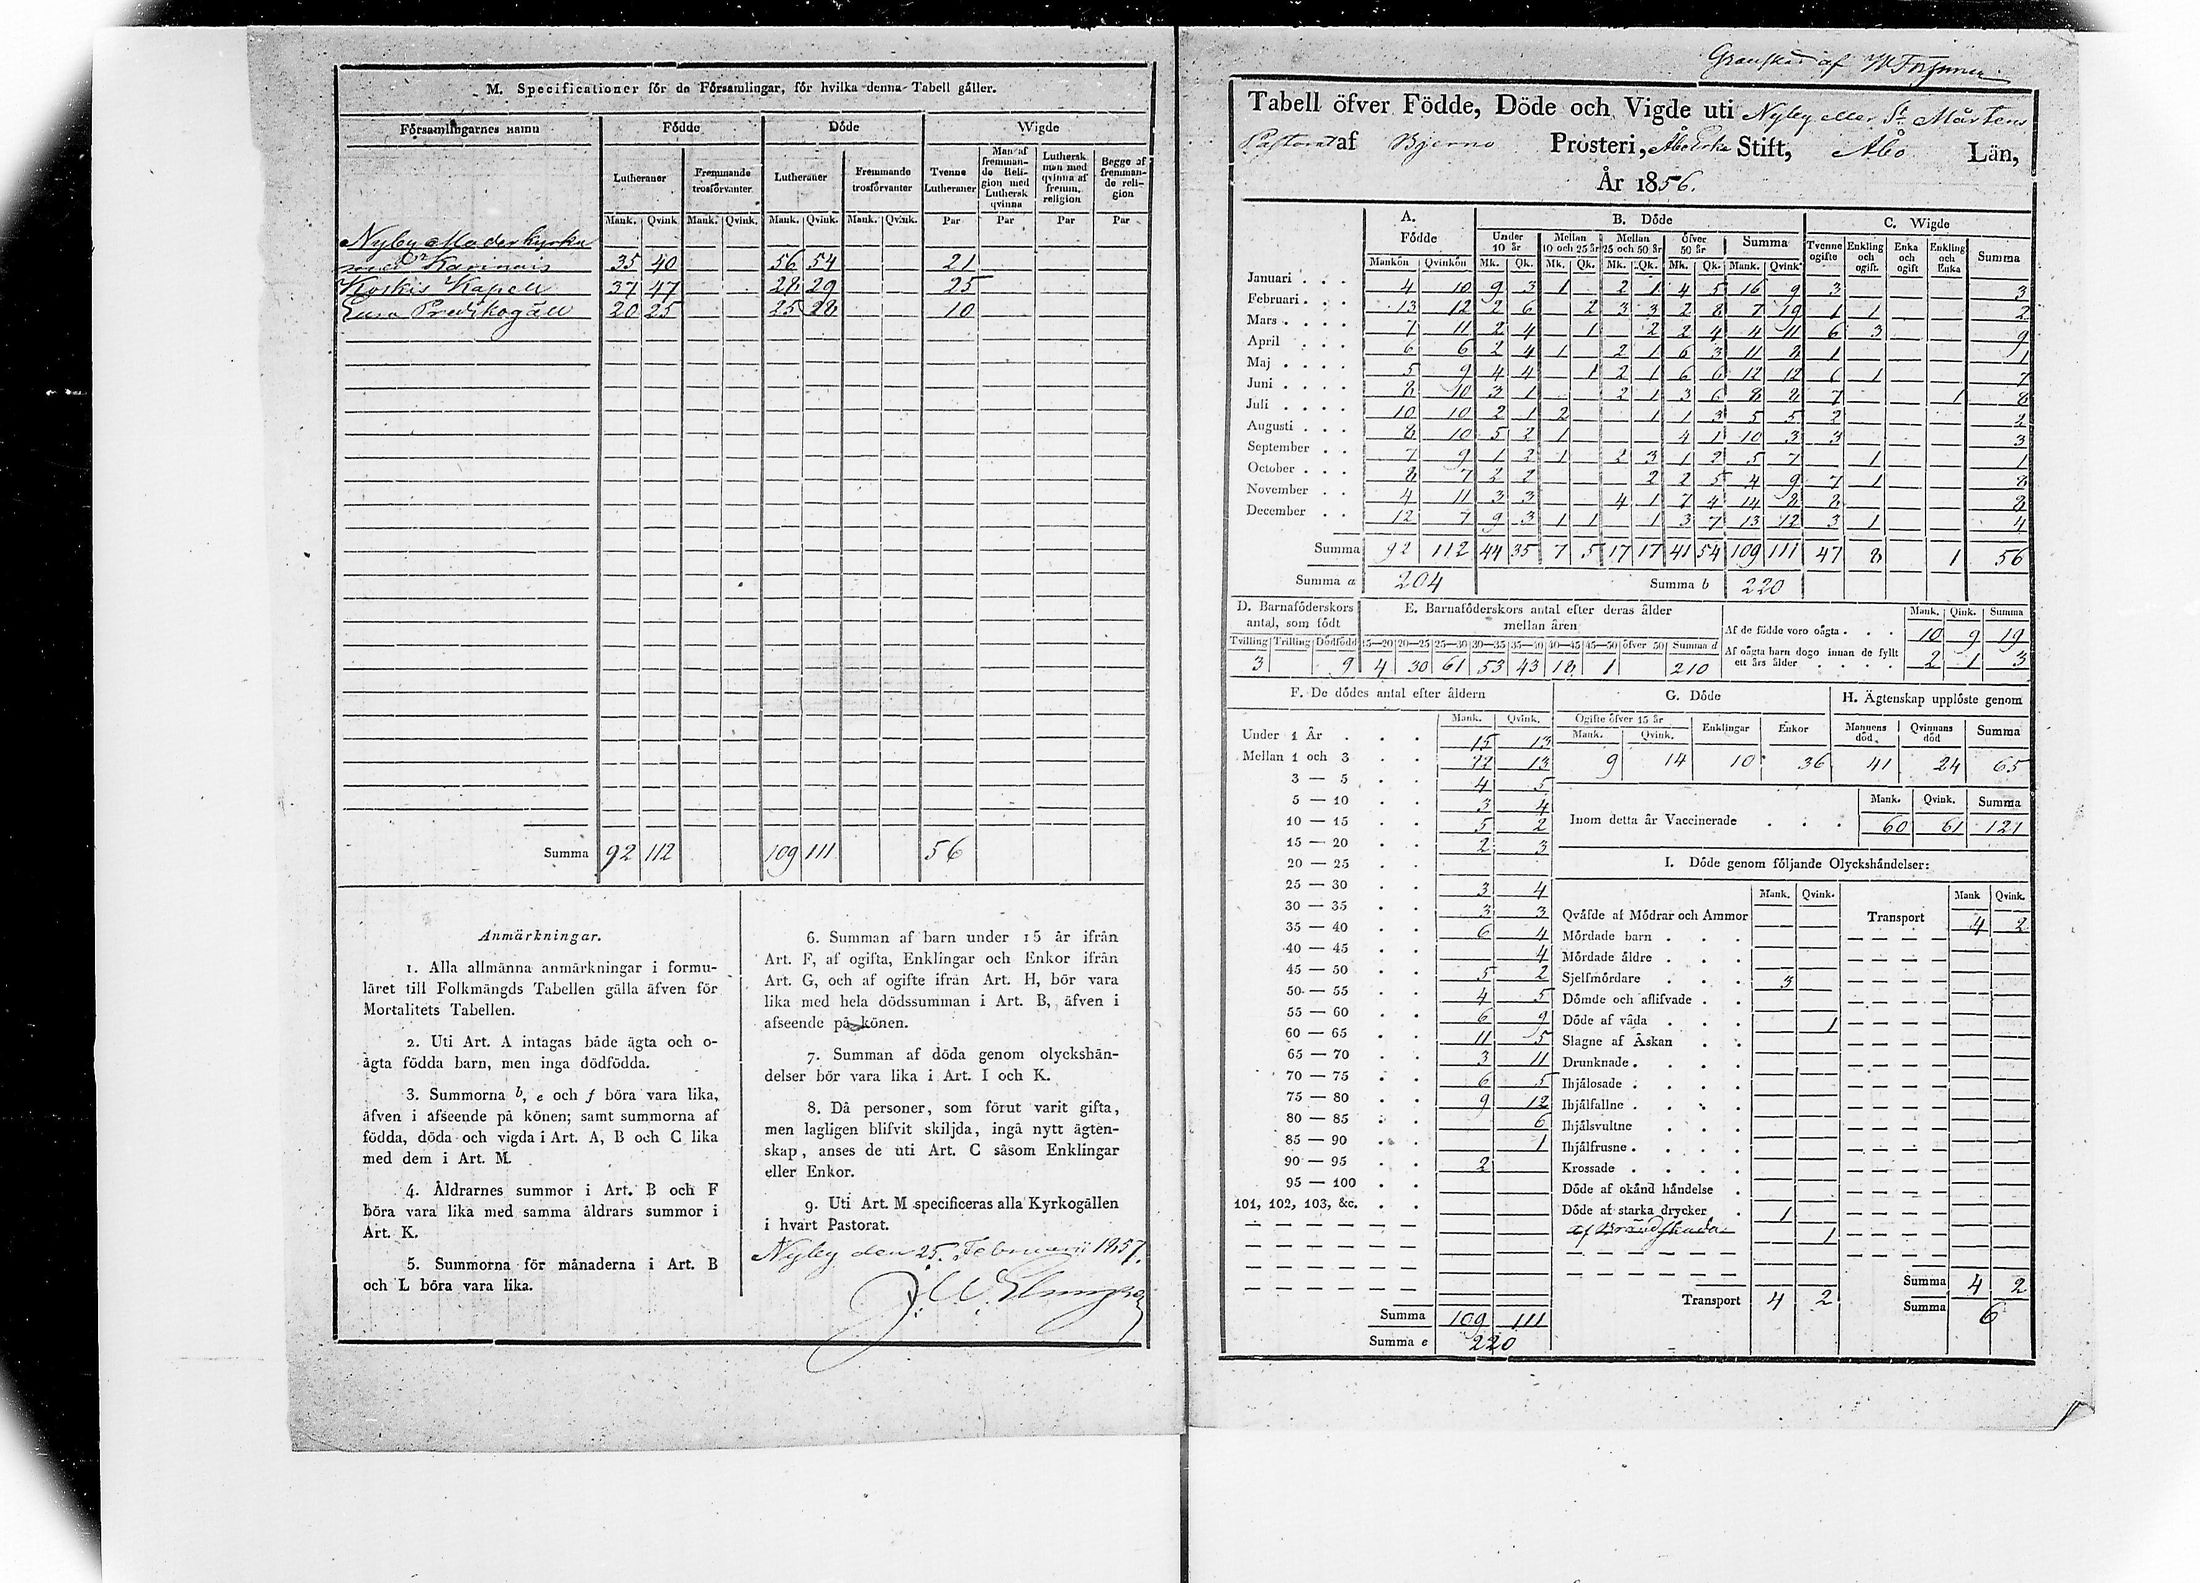 M. Specificationer för de Församlingar, för hvilka denna Tabell gäller.
Församlingarnes namn Födde Döde Wigde
Lutheraner Fremmande trosförvanter Lutheraner Fremmande trosförvanter Tvenne Lutheraner Man af fremmande Religion med Luthersk qvinna Luthersk man med qvinna af fremm. religion Begge af fremmande religion
Mank. Qvink. Mank. Qvink. Mank. Qvink. Mank. Qvink. Par Par Par Par
Nyby Moderkyrka
med Karinais 35 40 56 54 21
Koskis Kapell 37 47 28 29 25
Predikogäll 20 25 25 28 10
Summa 92 112 109 111 56
Anmärkningar.
1. Alla allmänna anmärkningar i formu-
läret till Folkmängds Tabellen gälla äfven för
Mortalitets Tabellen.
2. Uti Art. A intagas både ägta och o-
ägta födda barn, men inga dödfödda.
3. Summorna b, e och f böra vara lika,
äfven i afseende på könen; samt summorna af
födda, döda och vigda i Art. A, B och C lika
med dem i Art. M.
4. Åldrarnes summor i Art. B och F
böra vara lika med samma åldrars summor i
Art. K.
5. Summorna för månaderna i Art. B
och L böra vara lika.
6. Summan af barn under 15 år ifrån
Art. F, af ogifta, Enklingar och Enkor ifrån
Art. G, och af ogifte ifrån Art. H, bör vara
lika med hela dödssumman i Art. B, äfven i
afseende på könen.
7. Summan af döda genom olyckshän-
delser bör vara lika i Art. I och K.
8. Då personer, som förut varit gifta,
men lagligen blifvit skiljda, ingå nytt ägten-
skap, anses de uti Art. C såsom Enklingar
eller Enkor.
9. Uti Art. M specificeras alla Kyrkogällen
i hvart Pastorat.
Nyby den 25 Februarii 1857.
Granskad af
Tabell öfver Födde, Döde och Vigde uti Nyby eller St Mårtens
Pastorat af Bjerno Prosteri, Åbo Erke Stift, Åbo Län,
År 1856.
A. Födde B. Döde C. Wigde
Under 10 år Mellan 10 och 25 år Mellan 25 och 50 år Öfver 50 år Summa Tvenne ogifte Enkling och ogift. Enka och ogift Enkling och Enka Summa
Mankön Qvinkön Mk. Qk. Mk. Qk. Mk. Qk. Mk. Qk. Mank. Qvink
Januari . . . 4 10 9 3 1 2 1 4 5 16 9 3 3
Februari . . . 13 12 2 6 2 3 3 2 8 7 19 1 1 2
Mars . . . . 7 11 2 4 1 2 2 4 4 11 6 3 9
April . . . 6 6 2 4 1 2 1 6 3 11 8 1 1
Maj . . . . 5 9 4 4 1 2 1 6 6 12 12 6 1 7
Juni . . . . 8 10 3 1 2 1 3 6 8 8 7 1 8
Juli . . . . 10 10 2 1 2 1 1 3 5 5 2 2
Augusti . . . 8 10 5 2 1 4 1 10 3 3 3
September . . 7 9 1 2 1 2 3 1 2 5 7 1 1
October . . . 8 7 2 2 2 2 5 4 9 7 1 8
November . . 4 11 3 3 4 1 7 4 14 8 8 8
December . . 12 7 9 3 1 1 1 3 7 13 12 3 1 4
Summa 92 112 44 35 7 5 17 17 41 54 109 111 47 8 1 56
Summa a 204 Summa b 220
D. Barnaföderskors antal, som födt
Tvilling Trilling Dödfödd
3 9
E. Barnaföderskors antal efter deras ålder
mellan åren
15—20 20—25 25—30 30—35 35—40 40—45 45—50 öfver 50 Summa d
4 30 61 53 43 18 1 210
Mank. Qink. Summa
Af de födde voro oägta . . . 10 9 19
Af oägta barn dogo innan de fyllt
ett års ålder . . . . 2 1 3
F. De dödes antal efter åldern
Mank. Qvink.
Under 1 År . . . 15 13
Mellan 1 och 3 . . 22 13
3 — 5 . . 4 5
5 — 10 . . 3 4
10 — 15 . . 5 2
15 — 20 . . 2 3
20 — 25 . .
25 — 30 . . 3 4
30 — 35 . . 3 3
35 — 40 . . 6 4
40 — 45 . . 4
45 — 50 . . 5 2
50 — 55 . . 4 5
55 — 60 . . 6 9
60 — 65 . . 11 5
65 — 70 . . 3 11
70 — 75 . . 6 5
75 — 80 . . 9 12
80 — 85 . . 6
85 — 90 . . 1
90 — 95 . . 2
95 — 100 . .
101, 102, 103, &c. . .
Summa 109 111
Summa e 220
G. Döde
Ogifte öfver 15 år Enklingar Enkor
Mank. Qvink.
9 14 10 36
H. Ägtenskap upplöste genom
Mannens död Qvinnans död Summa
41 24 65
Mank. Qvink. Summa
Inom detta år Vaccinerade . . . 60 61 121
I. Döde genom följande Olyckshändelser:
Mank. Qvink. Mank Qvink.
Qväfde af Mödrar och Ammor Transport 4 2
Mördade barn . . .
Mördade äldre . . .
Sjelfmördare . . . 3
Dömde och aflifvade . .
Döde af våda . . . 1
Slagne af Åskan . .
Drunknade . . . .
Ihjälosade . . . .
Ihjälfallne . . . .
Ihjälsvultne . . .
Ihjälfrusne . . . .
Krossade . . . .
Döde af okänd händelse .
Döde af starka drycker . 1
af Brändskada 1
Summa 4 2
Transport 4 2 Summa 6